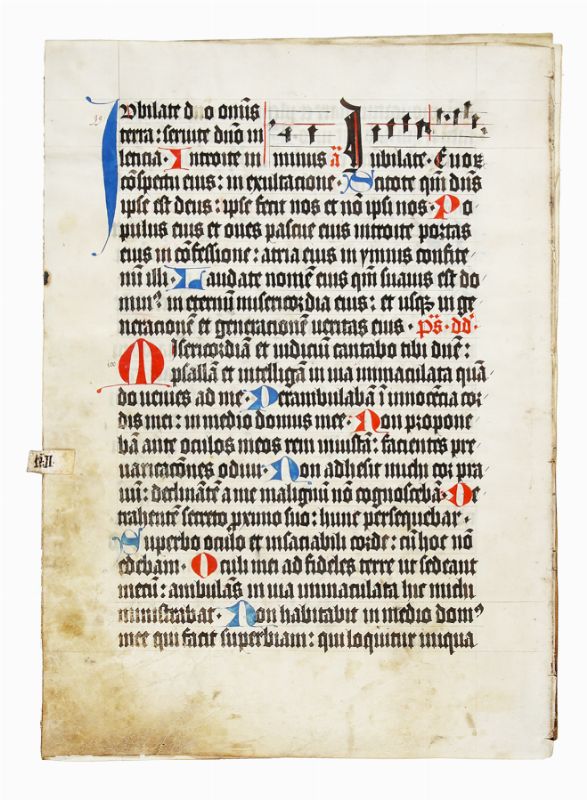 Jubilate dño omīs
terra: seruite dnõ in
leticia. Introite in minus ã Jubilate. Euouae
cõspectu eius: in exultacione. Scitote qm̄ dñs
ipse est deus: ipse fecit nos et nõ ipsi nos. Po
pulus eius et oues pascue eius introite portas
eius in cõfessione: atria eius in ymnis confite
mī illi. Laudate nomē eius qm̄ suauis est do
minꝰ in eternū misericordia eius: et usqꝫ in ge
neracionē et generacionē ueritas eius. p̄s. dd.
Misericordiā et iudiciū cantabo tibi dñe:
psallā et intelligā in uia immaculata quā
do uenies ad me. Perambulabā ī innocēcia cor
dis mei: in medio domus mee. Non propone
bā ante oculos meos rem iniustā: facientes pre
uaricacões odiui. Non adhesit michi cor pra
uū: declinātē a me malignū nõ cognoscebā. De
trahentē secreto pximo suo: hunc persequebar.
Superbo oculo et insaciabili corde: cū hoc nõ
edebam. Oculi mei ad fideles terre ut sedeant
mecū: ambulās in uia immaculata hic michi
ministrabat. Non habitabit in medio domꝰ
mee qui facit superbiam: qui loquitur iniqua